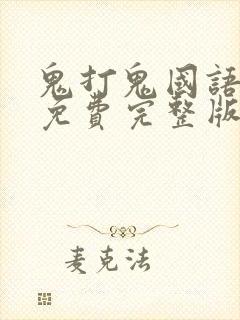 鬼打鬼國語
免費完整版
麦克法